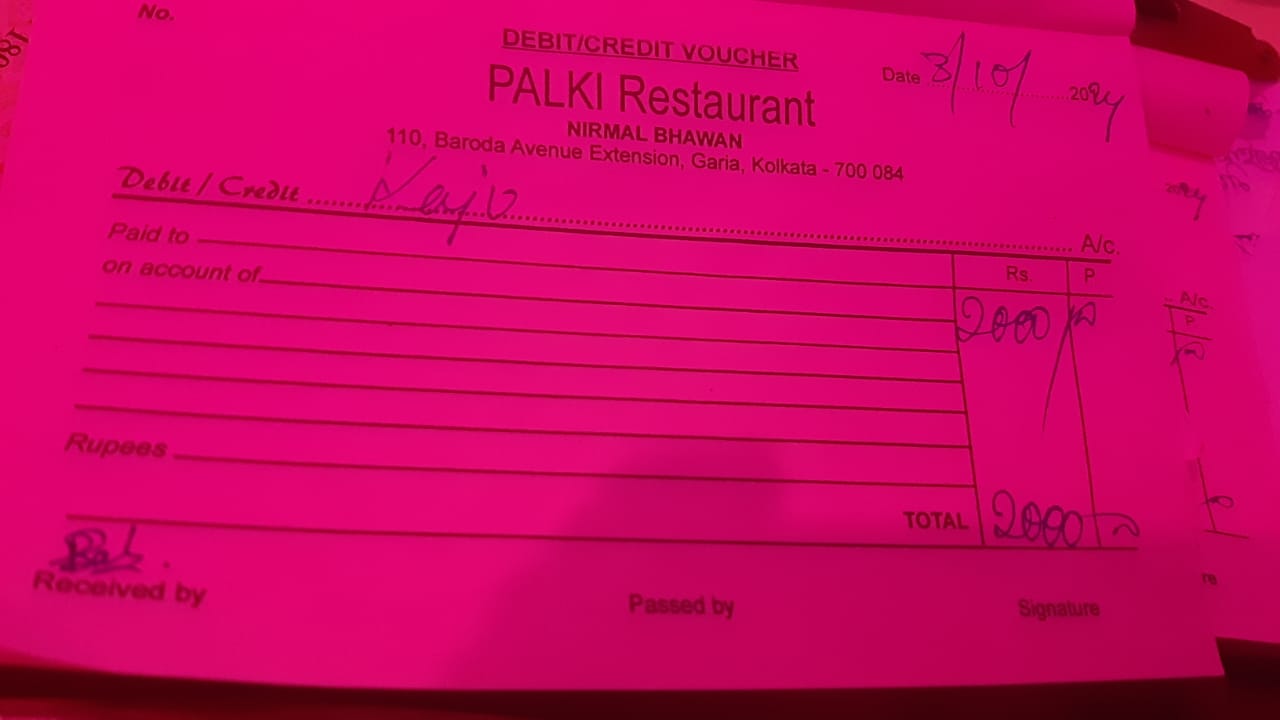 No.
DEBIT/CREDIT VOUCHER
PALKI Restaurant
NIRMAL BHAWAN
110, Baroda Avenue Extension, Garia, Kolkata - 700 084
Date 3/10/2024
Debit / Credit A/c.
Paid to
Rs. P
on account of
2000/-
Rupees
TOTAL 2000/-
Received by Passed by Signature
A/c.
P
re